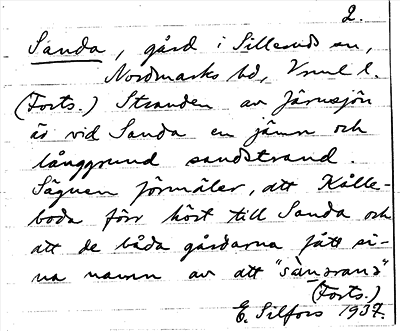 2.
Sanda, gård i Silleruds sn,
Nordmarks hd, Vrml l.
(Forts.) Stranden av Järnsjön
är vid Sanda en jämn och
långgrund sandstrand.
Sägnen förmäler, att Kålle-
boda förr hört till Sanda och
att de båda gårdarna fått si-
na namn av att "sånsrans"
(Forts.)
E. Silfors 1937.